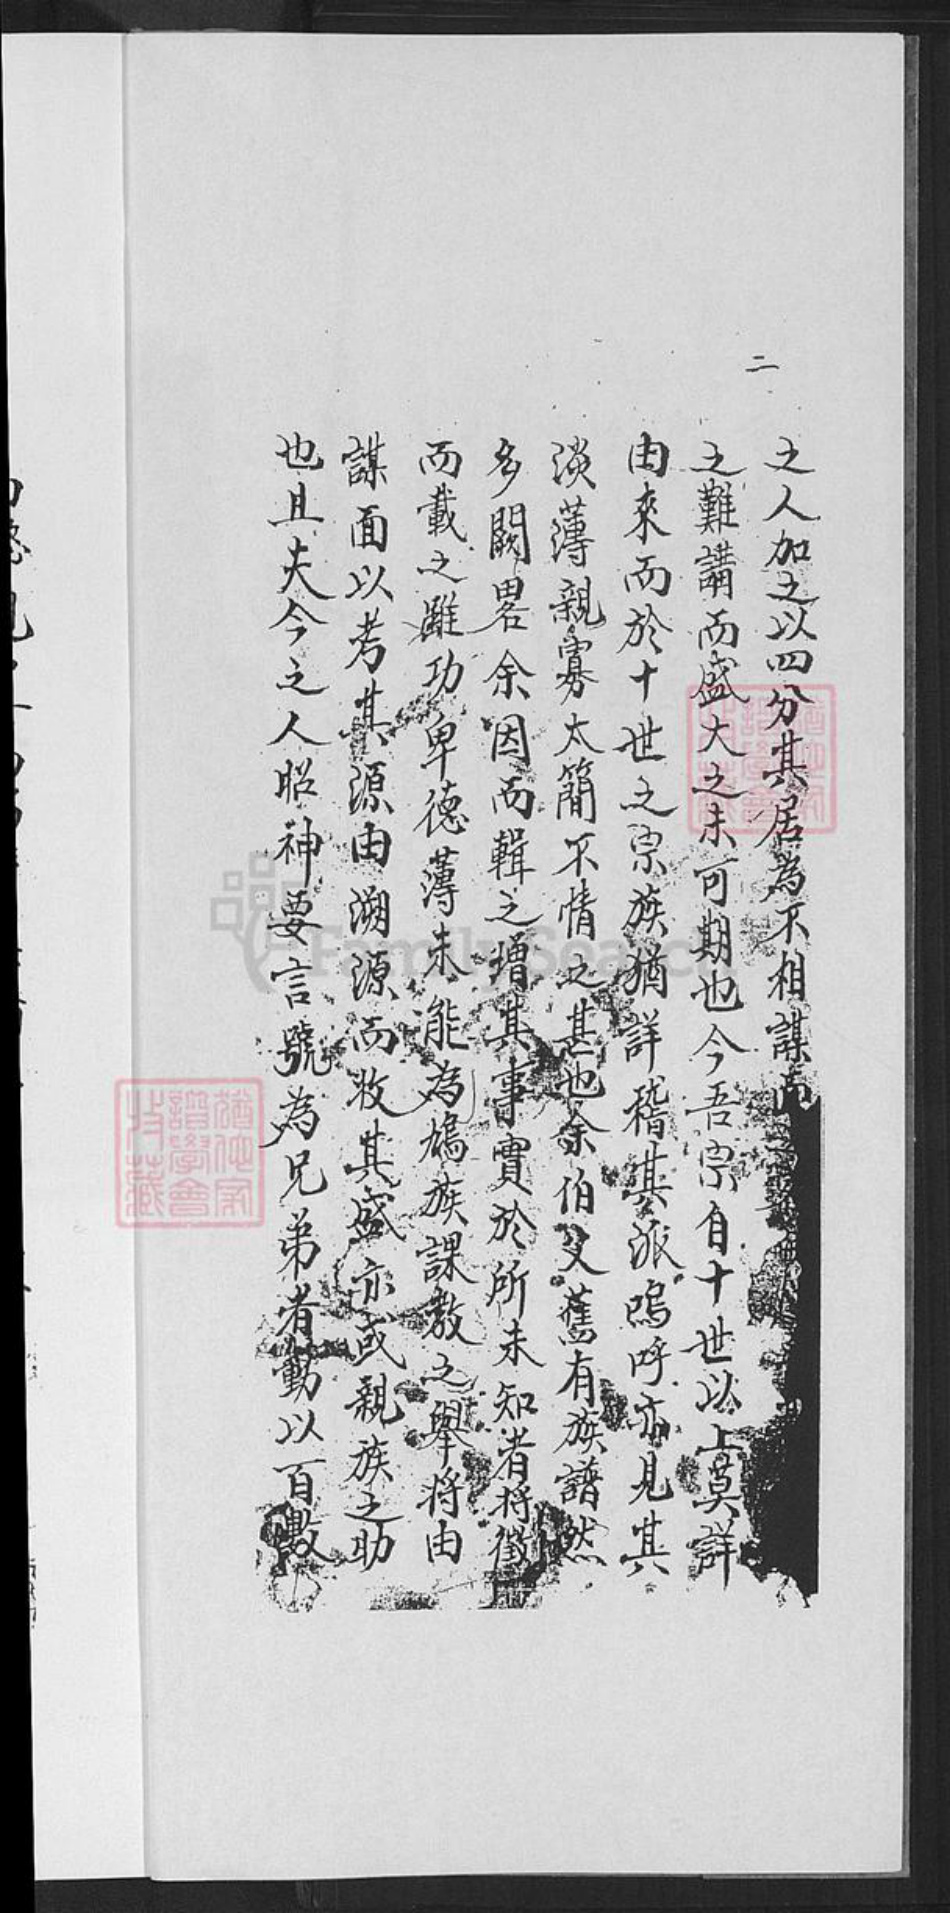 二
之人加之以四分其居為不相謀而
之難講而盛大之未可期也今吾宗自十世以上莫詳
由來而於十世之宗族猶詳稽其派嗚呼亦見其
淡薄親寡太簡不情之甚也余伯父舊有族譜然
多闕畧余因而輯之增其事實於所未知者將徵
而載之雖功卑德薄未能為鳩族課教之舉將由
謀面以考其源由溯源而收其盛亦或親族之助
也且夫今之人昭神要言號為兄弟者動以百數
FamilySearch